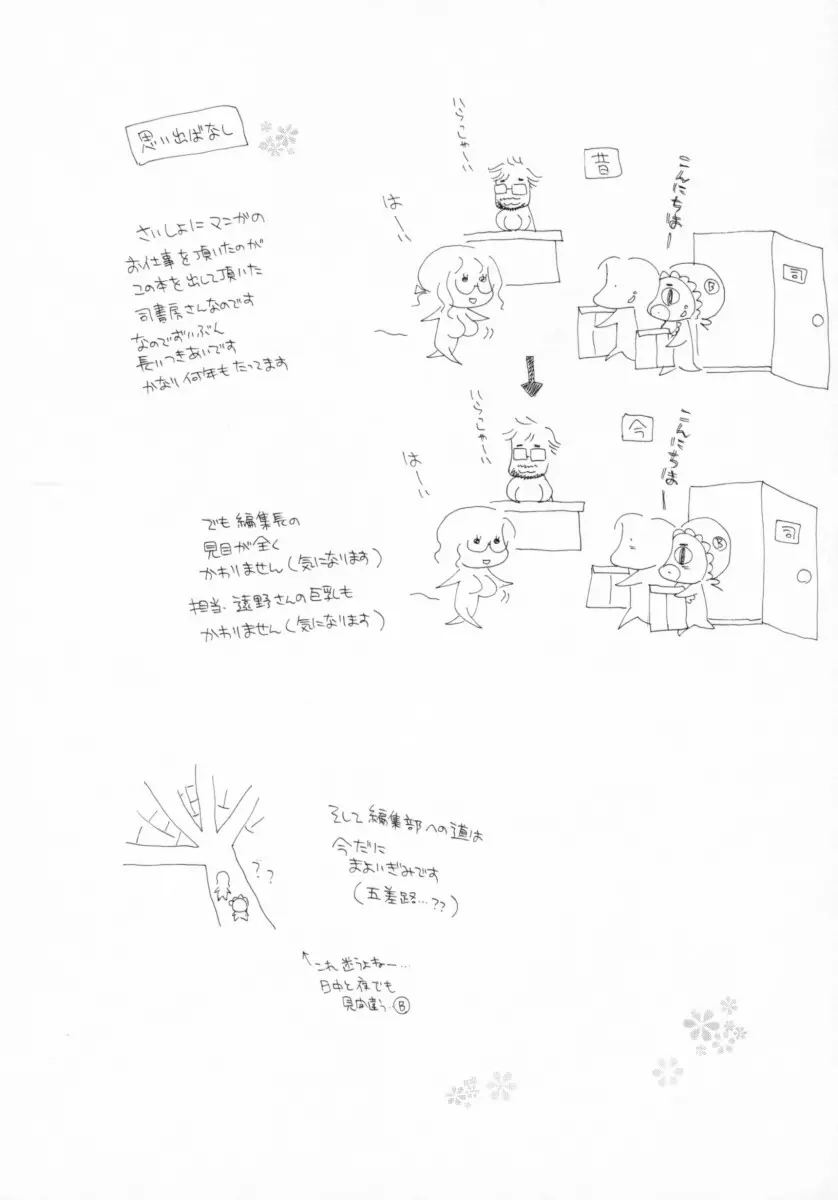 思い出ばなし
さいしょにマンガの
お仕事を頂いたのが
この本を出して頂いた
司書房さんなのです
なのでずいぶん
長いつきあいです
かなり何年もたってます
昔
こんにちはー
いらっしゃーい
はーい
司
B
今
こんにちはー
いらっしゃーい
はーい
司
B
でも編集長の
見目が全く
かわりません(気になります)
担当・遠野さんの巨乳も
かわりません(気になります)
そして編集部への道は
今だに
まよいぎみです
(五差路…??)
??
↑これ迷うよねー…
日中と夜でも
見間違う…B